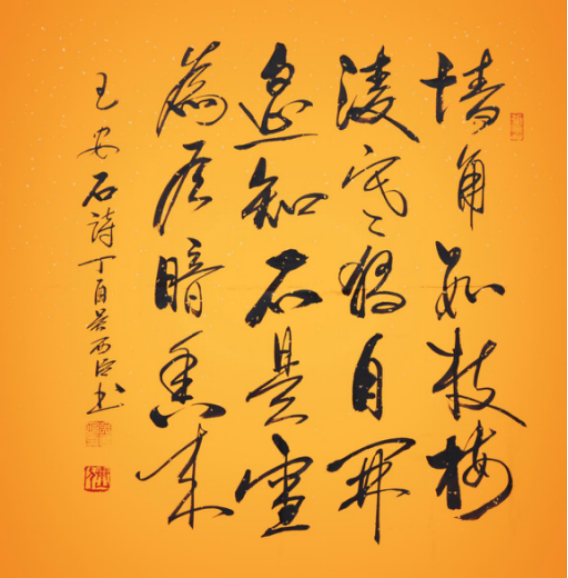 墙角数枝梅
凌寒独自开
遥知不是雪
為有暗香来
王安石詩丁酉吴西书